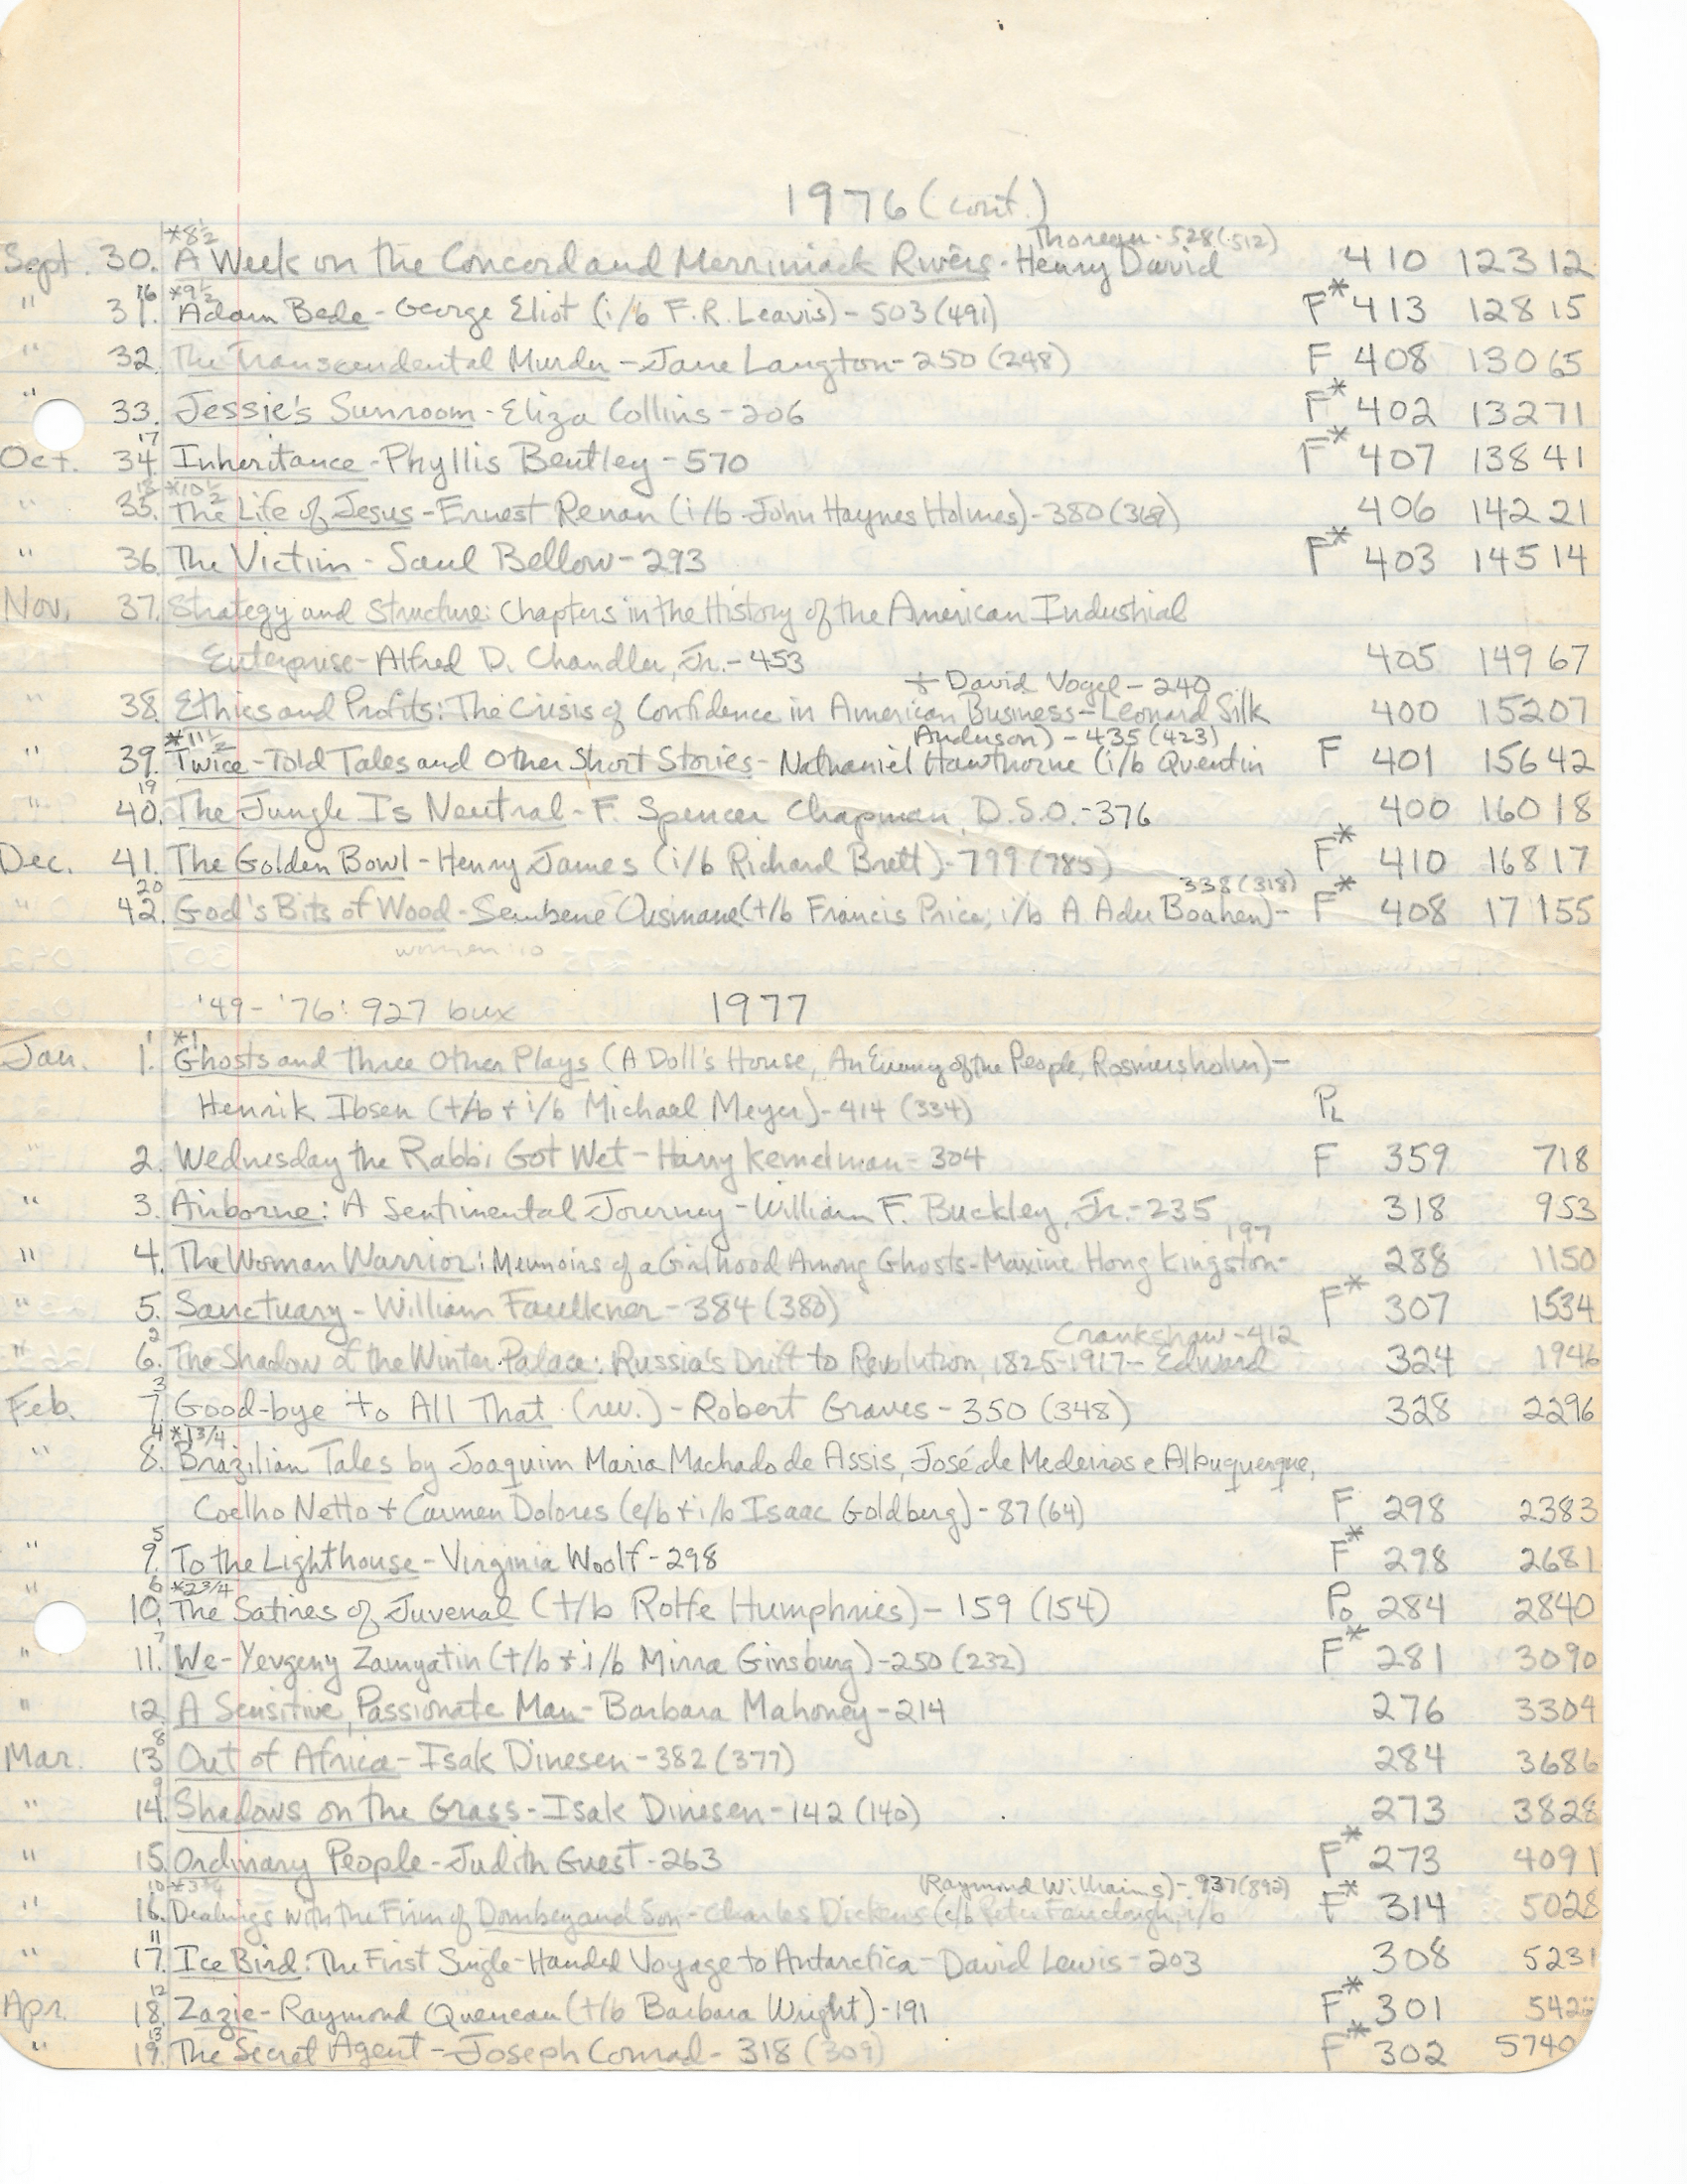 1976 (cont.)
*8½ Thoreau - 528 (512)
Sept. 30. A Week on the Concord and Merrimack Rivers - Henry David 410 12312
16 *9½
" 31. Adam Bede - George Eliot (i/b F.R. Leavis) - 503 (491) F* 413 12815
" 32. The Transcendental Murder - Jane Langton - 250 (248) F 408 13065
" 33. Jessie's Sunroom - Eliza Collins - 206 F* 402 13271
17
Oct. 34. Inheritance - Phyllis Bentley - 570 F* 407 13841
18 *10½
" 35. The Life of Jesus - Ernest Renan (i/b John Haynes Holmes) - 380 (368) 406 14221
" 36. The Victim - Saul Bellow - 293 F* 403 14514
Nov. 37. Strategy and Structure: Chapters in the History of the American Industrial
Enterprise - Alfred D. Chandler, Jr. - 453 405 14967
+ David Vogel - 240
" 38. Ethics and Profits: The Crisis of Confidence in American Business - Leonard Silk 400 15207
*11½ Anderson) - 435 (423)
" 39. Twice-Told Tales and Other Short Stories - Nathaniel Hawthorne (i/b Quentin F 401 15642
19
" 40. The Jungle Is Neutral - F. Spencer Chapman, D.S.O. - 376 400 16018
Dec. 41. The Golden Bowl - Henry James (i/b Richard Brett) - 799 (785) F* 410 16817
20 338 (318)
" 42. God's Bits of Wood - Sembene Ousmane (t/b Francis Price; i/b A Adu Boahen) - F* 408 17155
women: 10
'49-'76: 927 bux 1977
1 *1
Jan. 1. Ghosts and Three Other Plays (A Doll's House, An Enemy of the People, Rosmersholm) -
Henrik Ibsen (t/b + i/b Michael Meyer) - 414 (334) PL
" 2. Wednesday the Rabbi Got Wet - Harry Kemelman - 304 F 359 718
" 3. Airborne: A Sentimental Journey - William F. Buckley, Jr. - 235 318 953
197
" 4. The Woman Warrior: Memoirs of a Girlhood Among Ghosts - Maxine Hong Kingston - 288 1150
" 5. Sanctuary - William Faulkner - 384 (380) F* 307 1534
2 Crankshaw - 412
" 6. The Shadow of the Winter Palace: Russia's Drift to Revolution, 1825-1917 - Edward 324 1946
3
Feb. 7. Good-bye to All That (rev.) - Robert Graves - 350 (348) 328 2296
4 *1 3/4
" 8. Brazilian Tales by Joaquim Maria Machado de Assis, José de Medeiros e Albuquerque,
Coelho Netto + Carmen Dolores (e/b + i/b Isaac Goldberg) - 87 (64) F 298 2383
5
" 9. To the Lighthouse - Virginia Woolf - 298 F* 298 2681
6 *2 3/4
" 10. The Satires of Juvenal (t/b Rolfe Humphries) - 159 (154) Po 284 2840
7
" 11. We - Yevgeny Zamyatin (t/b + i/b Mirra Ginsburg) - 250 (232) F* 281 3090
" 12. A Sensitive, Passionate Man - Barbara Mahoney - 214 276 3304
8
Mar. 13. Out of Africa - Isak Dinesen - 382 (377) 284 3686
9
" 14. Shadows on the Grass - Isak Dinesen - 142 (140) 273 3828
" 15. Ordinary People - Judith Guest - 263 F* 273 4091
10 *3 3/4 Raymond Williams) - 937 (892)
" 16. Dealings with the Firm of Dombey and Son - Charles Dickens (e/b Peter Fairclough, i/b F* 314 5028
11
" 17. Ice Bird: The First Single-Handed Voyage to Antarctica - David Lewis - 203 308 5231
12
Apr. 18. Zazie - Raymond Queneau (t/b Barbara Wright) - 191 F* 301 5422
13
" 19. The Secret Agent - Joseph Conrad - 318 (309) F* 302 5740